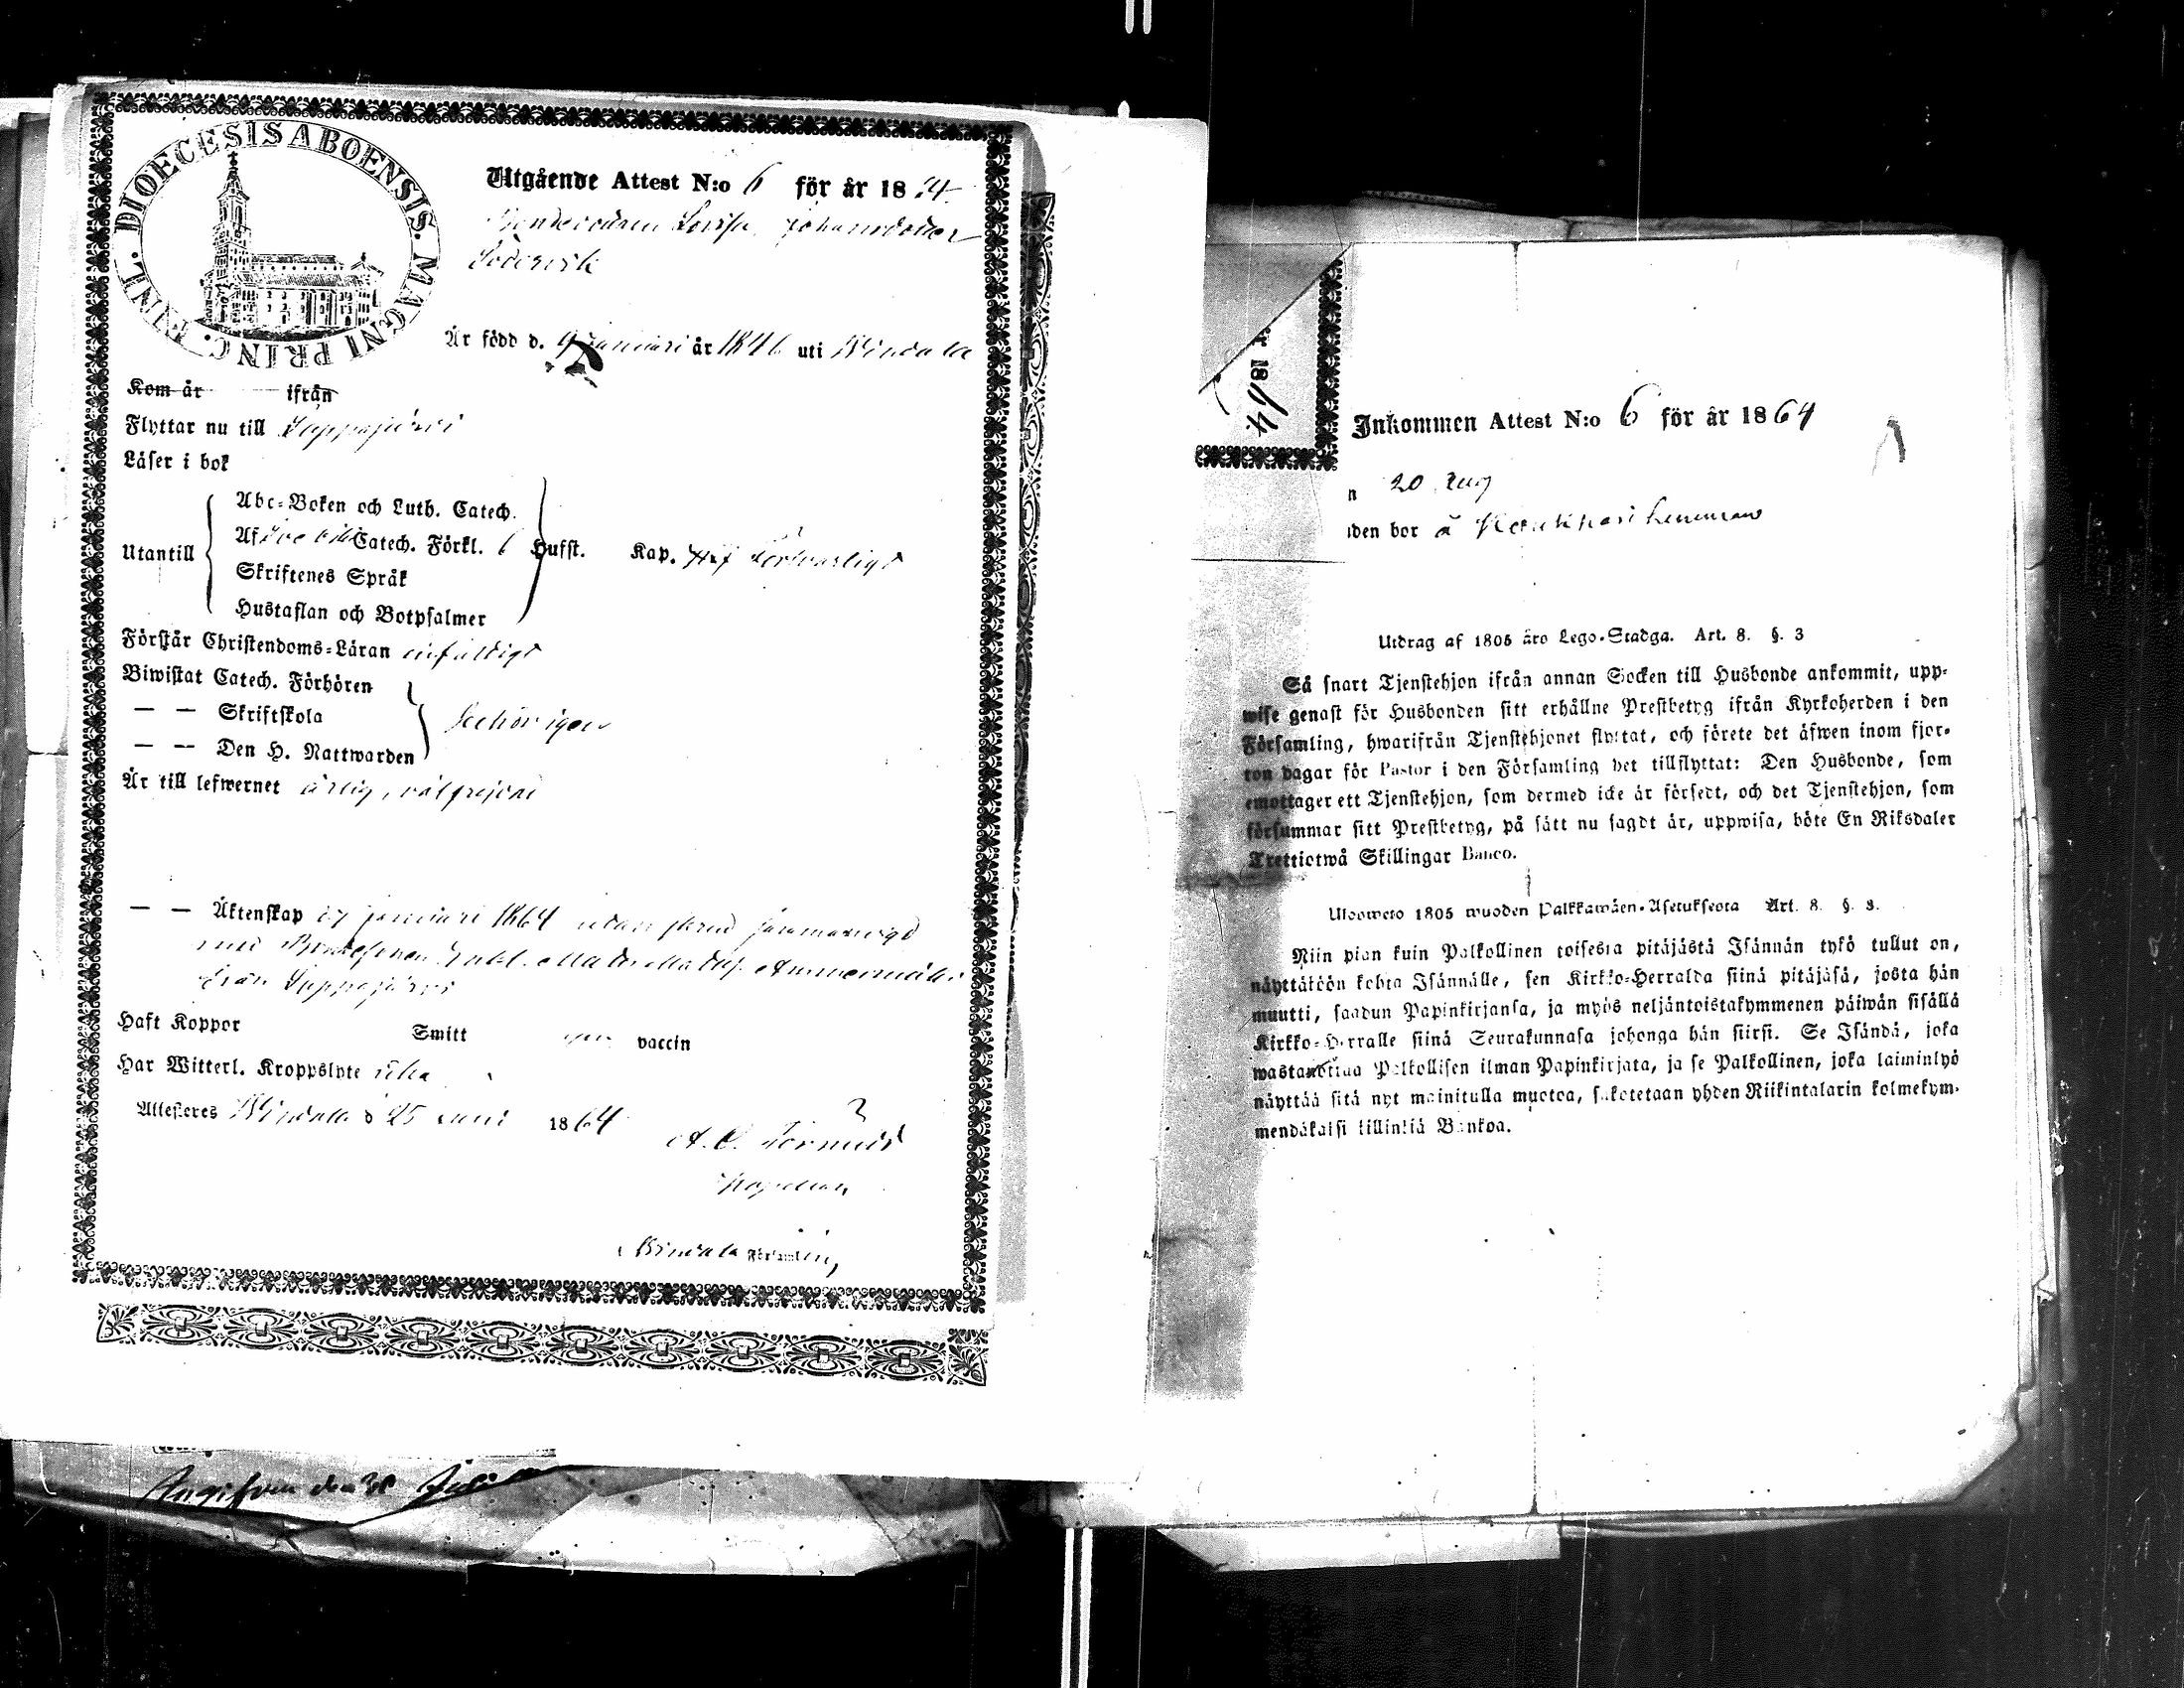 DIOECESIS ABOENSIS. MAGNI PRINC. FINL.
Utgående Attest N:o 6 för år 1864
Lovisa Johansdotter
Är född d. 9 Januari år 1846 uti Windala
Kom år ifrån
Flyttar nu till Lappajärvi
Läser i bok
Utantill
Abc-Boken och Luth. Catech.
Af Catech. Förkl. 6 Hufst. Kap. försvarligt
Skriftenes Språk
Hustaflan och Botpsalmer
Förstår Christendoms-Läran enfaldigt
Biwistat Catech. Förhören
— — Skriftskola
— — Den H. Nattwarden
behörigen
Är till lefwernet ärlig, välfrejdad
— — Äktenskap 17 Januari 1864 utan
med
från Lappajärvi
Haft Koppor Smitt vaccin
Har Witterl. Kroppslyte icke
Attesteres Windala d 25 Juni 1864
A. C.
Kapellan
Windala Församling
Angifven den 30 Juli
r 1864.
Inkommen Attest N:o 6 för år 1864
n 20 Aug
den bor å
Utdrag af 1805 åro Lego-Stadga. Art. 8. §. 3
Så snart Tjenstehjon ifrån annan Socken till Husbonde ankommit, upp-
wise genast för Husbonden sitt erhållne Prestbetyg ifrån Kyrkoherden i den
Församling, hwarifrån Tjenstehjonet flyttat, och förete det äfwen inom fjor-
ton dagar för Pastor i den Församling det tillflyttat: Den Husbonde, som
emottager ett Tjenstehjon, som dermed icke är försedt, och det Tjenstehjon, som
försummar sitt Prestbetyg, på sätt nu sagdt är, uppwisa, böte En Riksdaler
Trettiotwå Skillingar Banco.
Ulosweto 1805 wuoden Palkkawäen-Asetuksesta Art. 8. §. 3.
Niin pian kuin Palkollinen toisesta pitäjästä Isännän tykö tullut on,
näyttäköön kohta Isännälle, sen Kirkko-Herralda siinä pitäjäsä, josta hän
muutti, saadun Papinkirjansa, ja myös neljäntoistakymmenen päiwän sisällä
Kirkko-Herralle siinä Seurakunnasa johonga hän siirsi. Se Isändä, joka
wastanottaa Palkollisen ilman Papinkirjata, ja se Palkollinen, joka laiminlyö
näyttää sitä nyt mainitulla muotoa, sakotetaan yhden Riikintalarin kolmekym-
mendäkaksi killinkiä Bankoa.